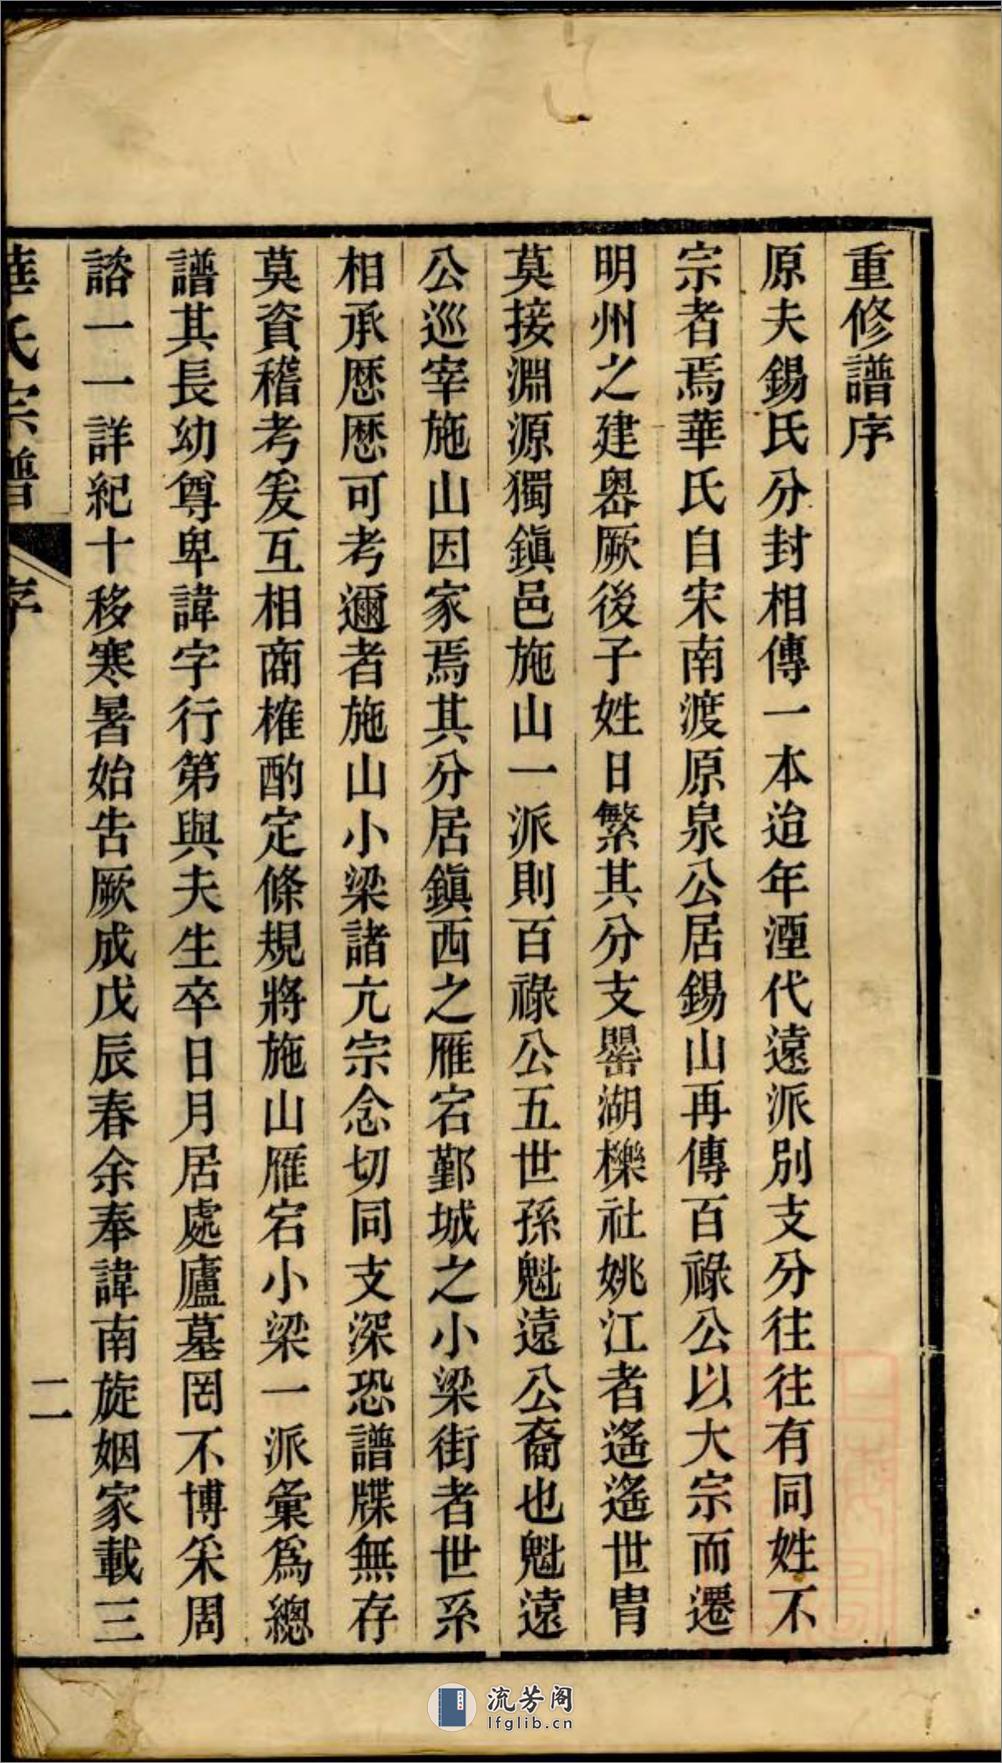 重修譜序
原夫錫氏分封相傳一本迨年湮代遠派別支分往往有同姓不
宗者焉華氏自宋南渡原泉公居錫山再傳百祿公以大宗而遷
明州之建嶴厥後子姓日繁其分支罌湖櫟社姚江者遙遙世胄
莫接淵源獨鎭邑施山一派則百祿公五世孫魁遠公裔也魁遠
公巡宰施山因家焉其分居鎭西之雁宕鄞城之小梁街者世系
相承歷歷可考邇者施山小梁諸亢宗念切同支深恐譜牒無存
莫資稽考爰互相商榷酌定條規將施山雁宕小梁一派彙爲總
譜其長幼尊卑諱字行第與夫生卒日月居處廬墓罔不博采周
諮一一詳紀十移寒暑始告厥成戊辰春余奉諱南旋姻家載三
華氏宗譜
序
二
流芳阁
lfglib.cn